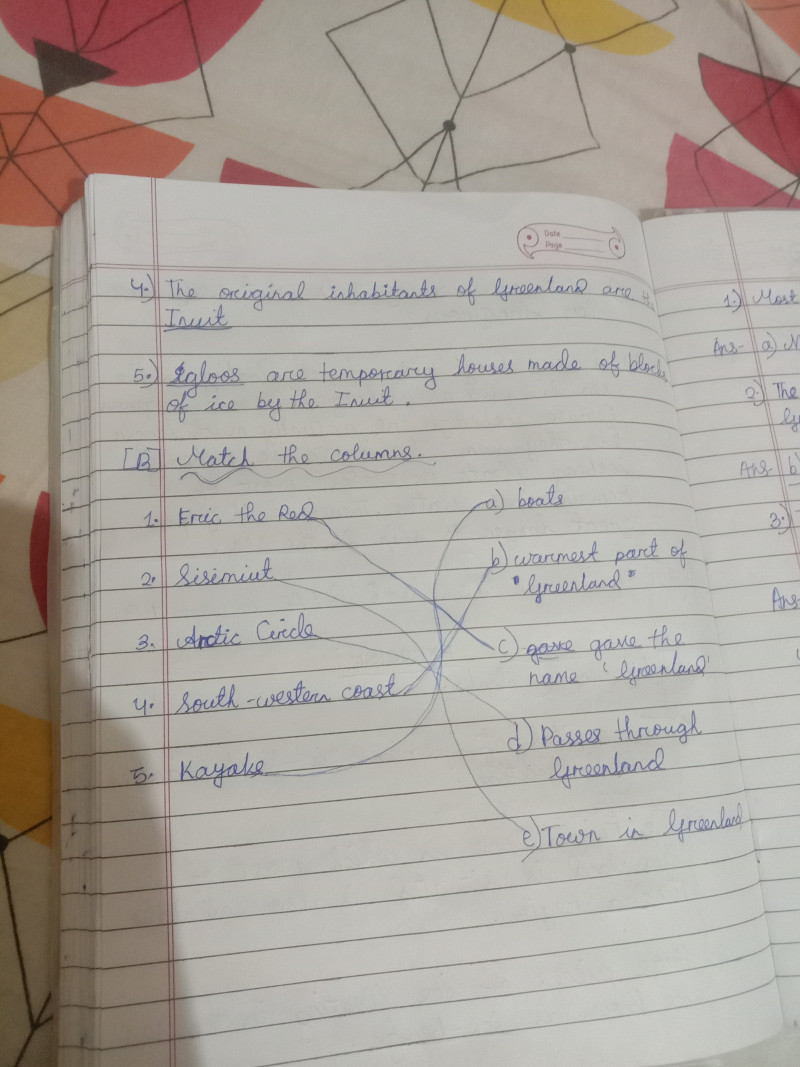 Date
Page
4.) The original inhabitants of Greenland are
Inuit
5.) Igloos are temporary houses made of blocks
of ice by the Inuit.
[B] Match the columns.
1. Eric the Red
a) boats
2. Sisimiut
b) warmest part of
"Greenland"
3. Arctic Circle
c) gave the
name 'Greenland'
4. South-western coast
d) Passes through
Greenland
5. Kayaks
e) Town in Greenland
1.) Most
Ans- a)
2.) The
Ans- b)
3.)
Ans